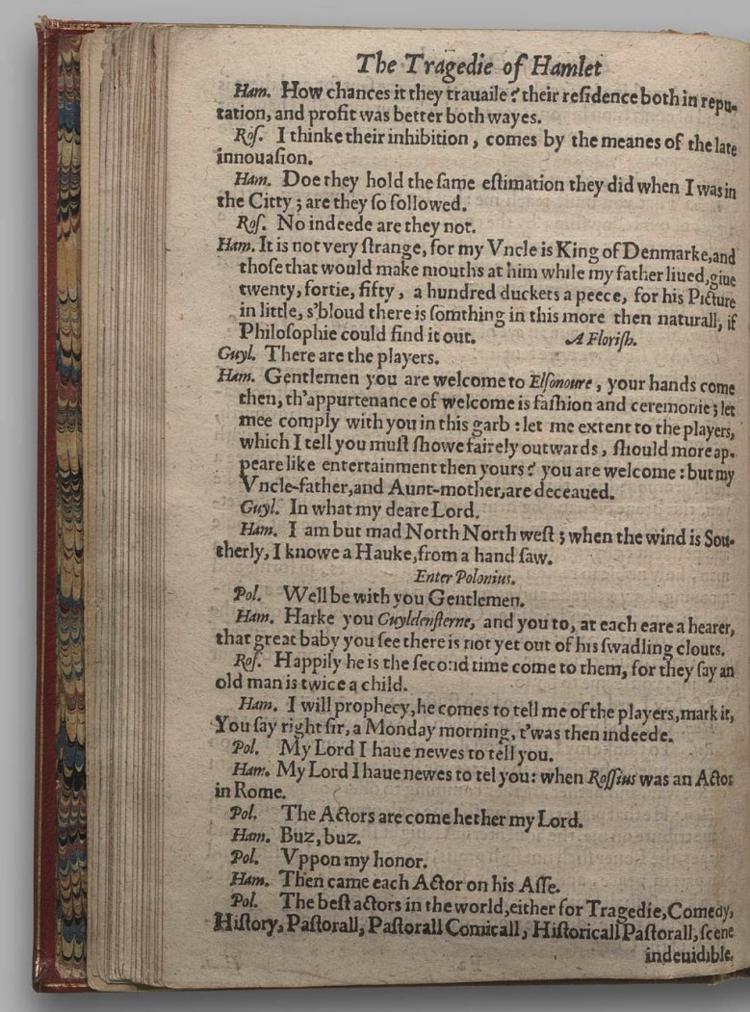 The Tragedie of Hamlet
Ham. How chances it they trauaile? their reſidence both in repu-
tation, and profit was better both wayes.
Roſ. I thinke their inhibition, comes by the meanes of the late
innouaſion.
Ham. Doe they hold the ſame eſtimation they did when I was in
the Citty; are they ſo followed.
Roſ. No indeede are they not.
Ham. It is not very ſtrange, for my Vncle is King of Denmarke, and
thoſe that would make mouths at him while my father liued, giue
twenty, fortie, fifty, a hundred duckets a peece, for his Picture
in little, s'bloud there is ſomthing in this more then naturall, if
Philoſophie could find it out. A Floriſh.
Guyl. There are the players.
Ham. Gentlemen you are welcome to Elſonoure, your hands come
then, th'appurtenance of welcome is faſhion and ceremonie; let
mee comply with you in this garb: let me extent to the players,
which I tell you muſt ſhowe fairely outwards, ſhould more ap-
peare like entertainment then yours? you are welcome: but my
Vncle-father, and Aunt-mother, are deceaued.
Guyl. In what my deare Lord.
Ham. I am but mad North North weſt; when the wind is Sou-
therly, I knowe a Hauke, from a hand ſaw.
Enter Polonius.
Pol. Well be with you Gentlemen.
Ham. Harke you Guyldenſterne, and you to, at each eare a hearer,
that great baby you ſee there is not yet out of his ſwadling clouts.
Roſ. Happily he is the ſecond time come to them, for they ſay an
old man is twice a child.
Ham. I will prophecy, he comes to tell me of the players, mark it,
You ſay right ſir, a Monday morning, t'was then indeede.
Pol. My Lord I haue newes to tell you.
Ham. My Lord I haue newes to tel you: when Roſſius was an Actor
in Rome.
Pol. The Actors are come hether my Lord.
Ham. Buz, buz.
Pol. Vppon my honor.
Ham. Then came each Actor on his Aſſe.
Pol. The beſt actors in the world, either for Tragedie, Comedy,
Hiſtory, Paſtorall, Paſtorall Comicall, Hiſtoricall Paſtorall, ſcene
indeuidible,